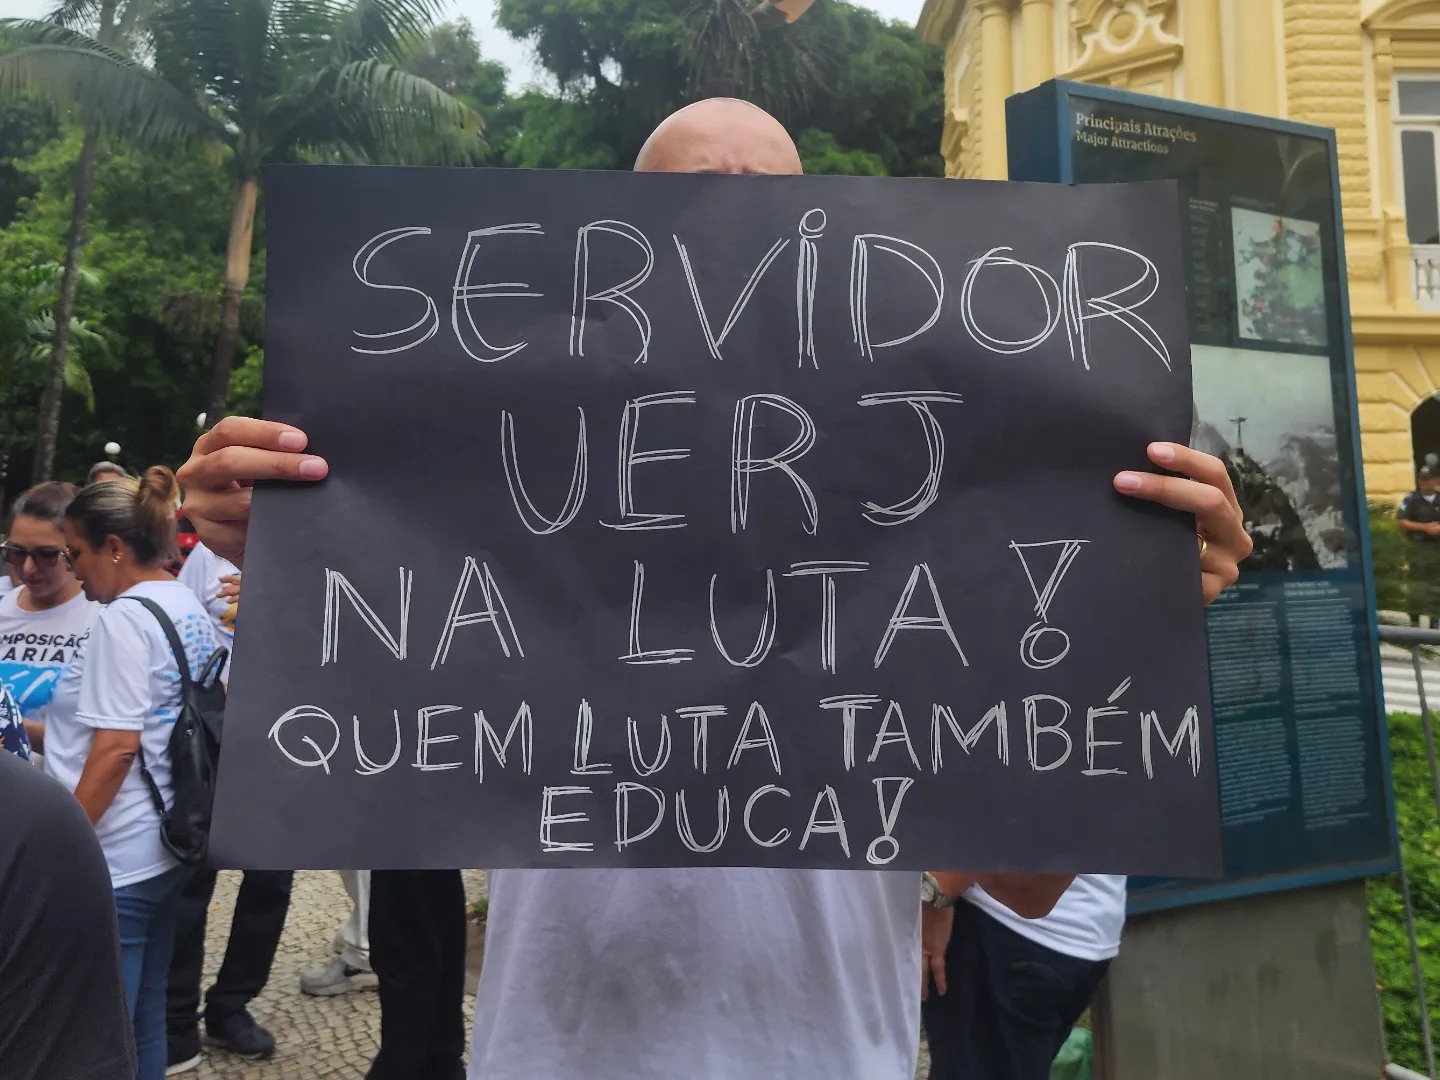 SERVIDOR
UERJ
NA LUTA!
QUEM LUTA TAMBÉM
EDUCA!
Principais Atrações
Major Attractions